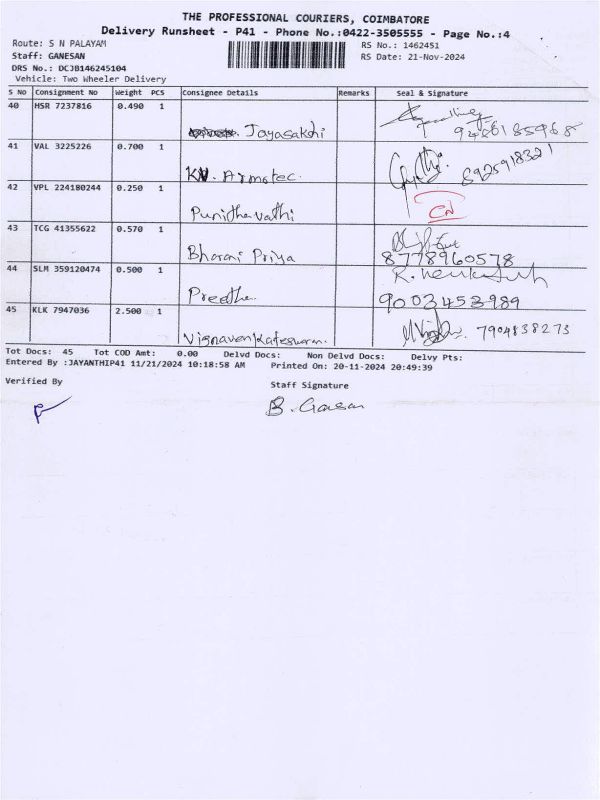 THE PROFESSIONAL COURIERS, COIMBATORE
Delivery Runsheet - P41 - Phone No.:0422-3505555 - Page No.:4
Route: S N PALAYAM RS No.: 1462451
Staff: GANESAN RS Date: 21-Nov-2024
DRS No.: DCJB146245104
Vehicle: Two Wheeler Delivery
S No Consignment No Weight PCS Consignee Details Remarks Seal & Signature
40 HSR 7237816 0.490 1
Jayasakthi 9486185968
41 VAL 3225226 0.700 1
KV. Armotec. 8925918321
42 VPL 224180244 0.250 1
Punithavathi CN
43 TCG 41355622 0.570 1
Bharani Priya 8778960578
44 SLM 359120474 0.500 1
Preetha 9003453989
45 KLK 7947036 2.500 1
Vignavenkateswaran. 7904838273
Tot Docs: 45 Tot COD Amt: 0.00 Delvd Docs: Non Delvd Docs: Delvy Pts:
Entered By :JAYANTHIP41 11/21/2024 10:18:58 AM Printed On: 20-11-2024 20:49:39
Verified By Staff Signature